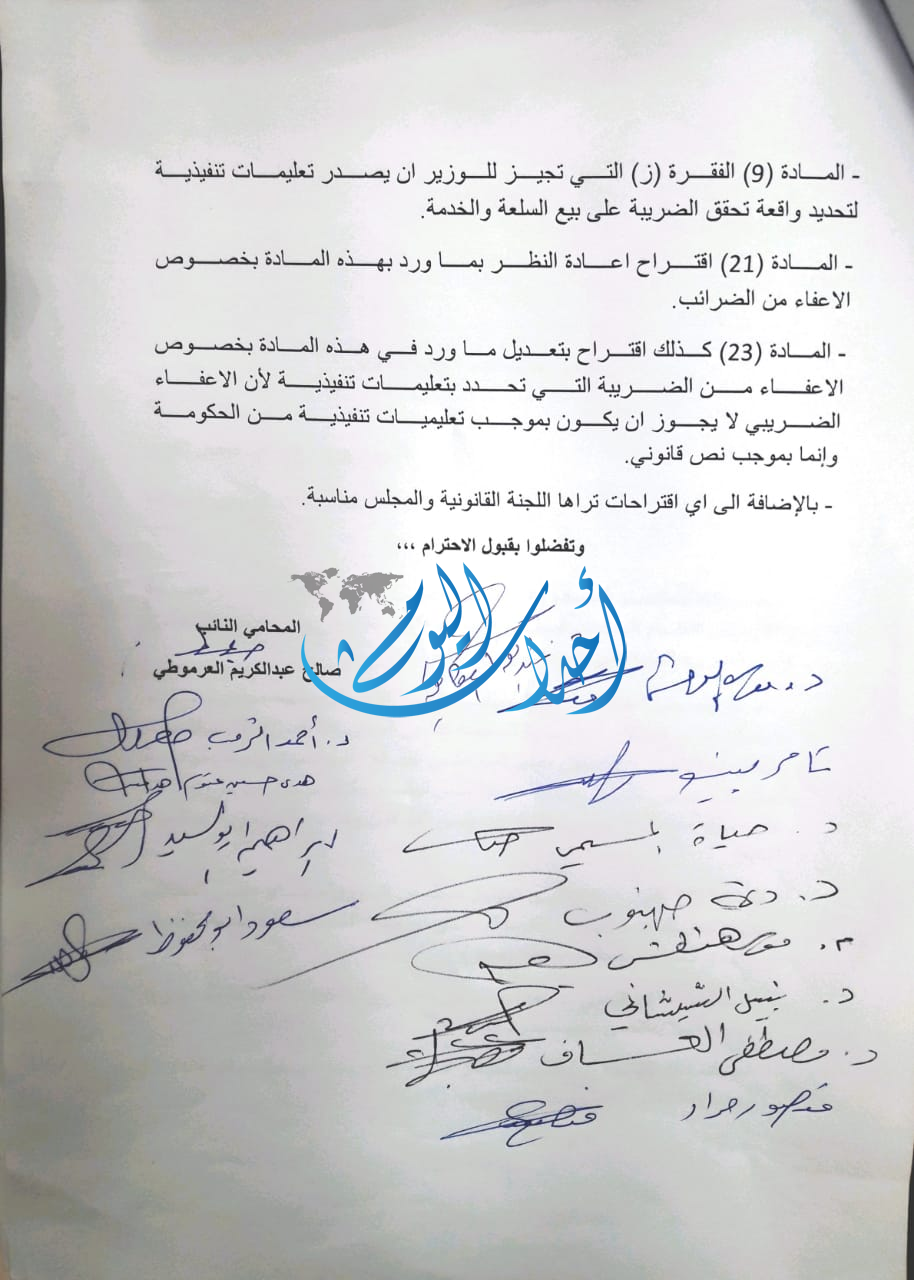 - المادة (9) الفقرة (ز) التي تجيز للوزير ان يصدر تعليمات تنفيذية
لتحديد واقعة تحقق الضريبة على بيع السلعة والخدمة.
- المادة (21) اقتراح اعادة النظر بما ورد بهذه المادة بخصوص
الاعفاء من الضرائب.
- المادة (23) كذلك اقتراح بتعديل ما ورد في هذه المادة بخصوص
الاعفاء من الضريبة التي تحدد بتعليمات تنفيذية لأن الاعفاء
الضريبي لا يجوز ان يكون بموجب تعليميات تنفيذية من الحكومة
وإنما بموجب نص قانوني.
- بالإضافة الى اي اقتراحات تراها اللجنة القانونية والمجلس مناسبة.
وتفضلوا بقبول الاحترام ،،،
أحداث اليوم
المحامي النائب
صالح عبدالكريم العرموطي
د. أحمد الرقب
تامر بينو
هدى حسين عتوم
د. حياة المسيمي
ابراهيم ابو السيد
د. ديمة طهبوب
سعود ابو محفوظ
م. موسى هنطش
د. نبيل الشيشاني
د. مصطفى العساف
منصور مراد